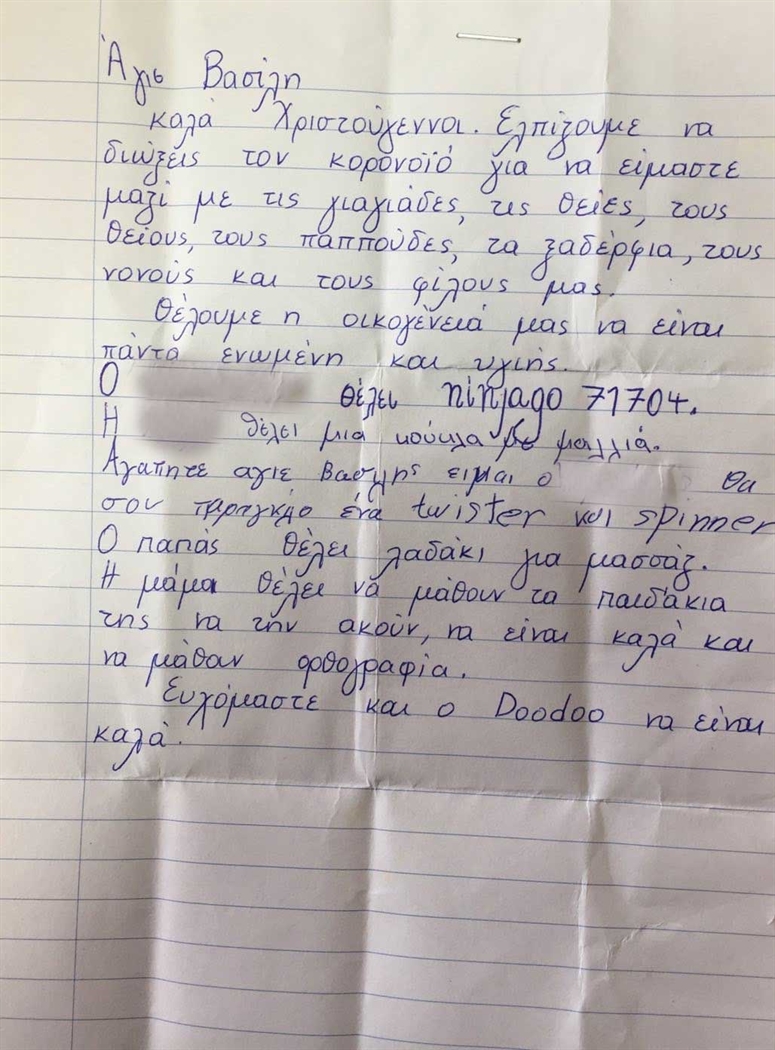 Άγιε Βασίλη
καλά Χριστούγεννα. Ελπίζουμε να
διώξεις τον κορονοϊό για να είμαστε
μαζί με τις γιαγιάδες, τις θείες, τους
θείους, τους παππούδες, τα ξαδέρφια, τους
νονούς και τους φίλους μας.
Θέλουμε η οικογένειά μας να είναι
πάντα ενωμένη και υγιής.
Ο θέλει ninjago 71704.
Η θέλει μια κούκλα με μαλλιά.
Αγαπητε αγιε Βασιλης ειμαι ο θα
σου παραγκιλο ένα twister και spinner
Ο παπάς θέλει λαδάκι για μασσάζ.
Η μάμα θέλει νά μάθουν τα παιδάκια
της να την ακούν, να είναι καλά και
να μάθαν φθογραφία.
Ευχόμαστε και ο Doodoo να είναι
καλά.